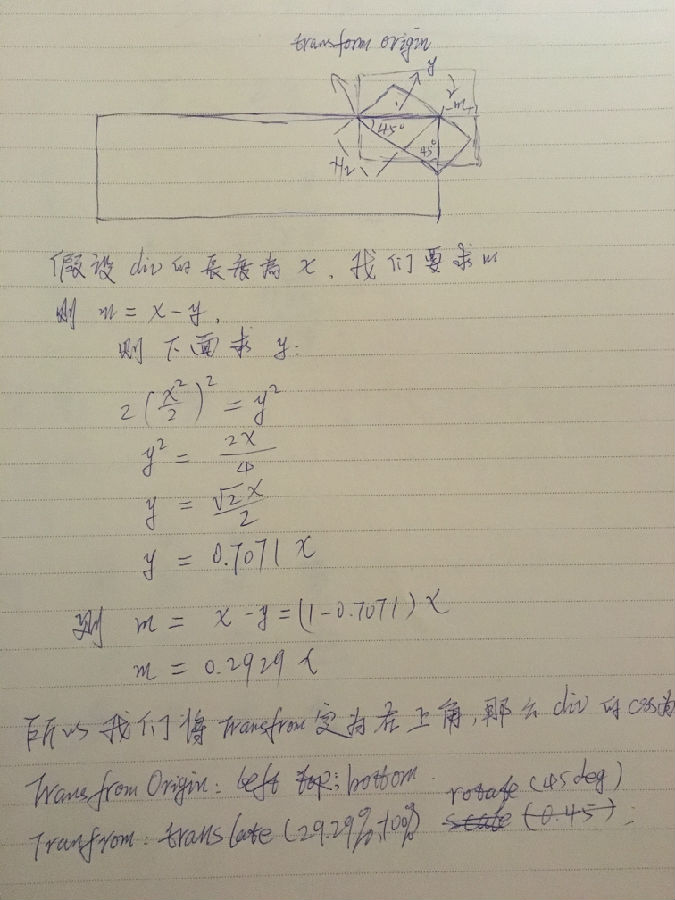 transform origin
y
m
45°
45°
假设 div 的长度为 x, 我们要求 m
则 m = x-y,
则下面求 y.
2(x²/2)² = y²
y² = 2X/4
y = √2 x/2
y = 0.7071 x
则 m = x-y = (1-0.7071) x
m = 0.2929 x
所以我们将 Transfrom 定为左上角, 那么 div 的 css 为
Transfrom Origin: left top: bottom
rotate (45deg)
Tranfrom: translate (29.29%, 0%) scale (0.45);